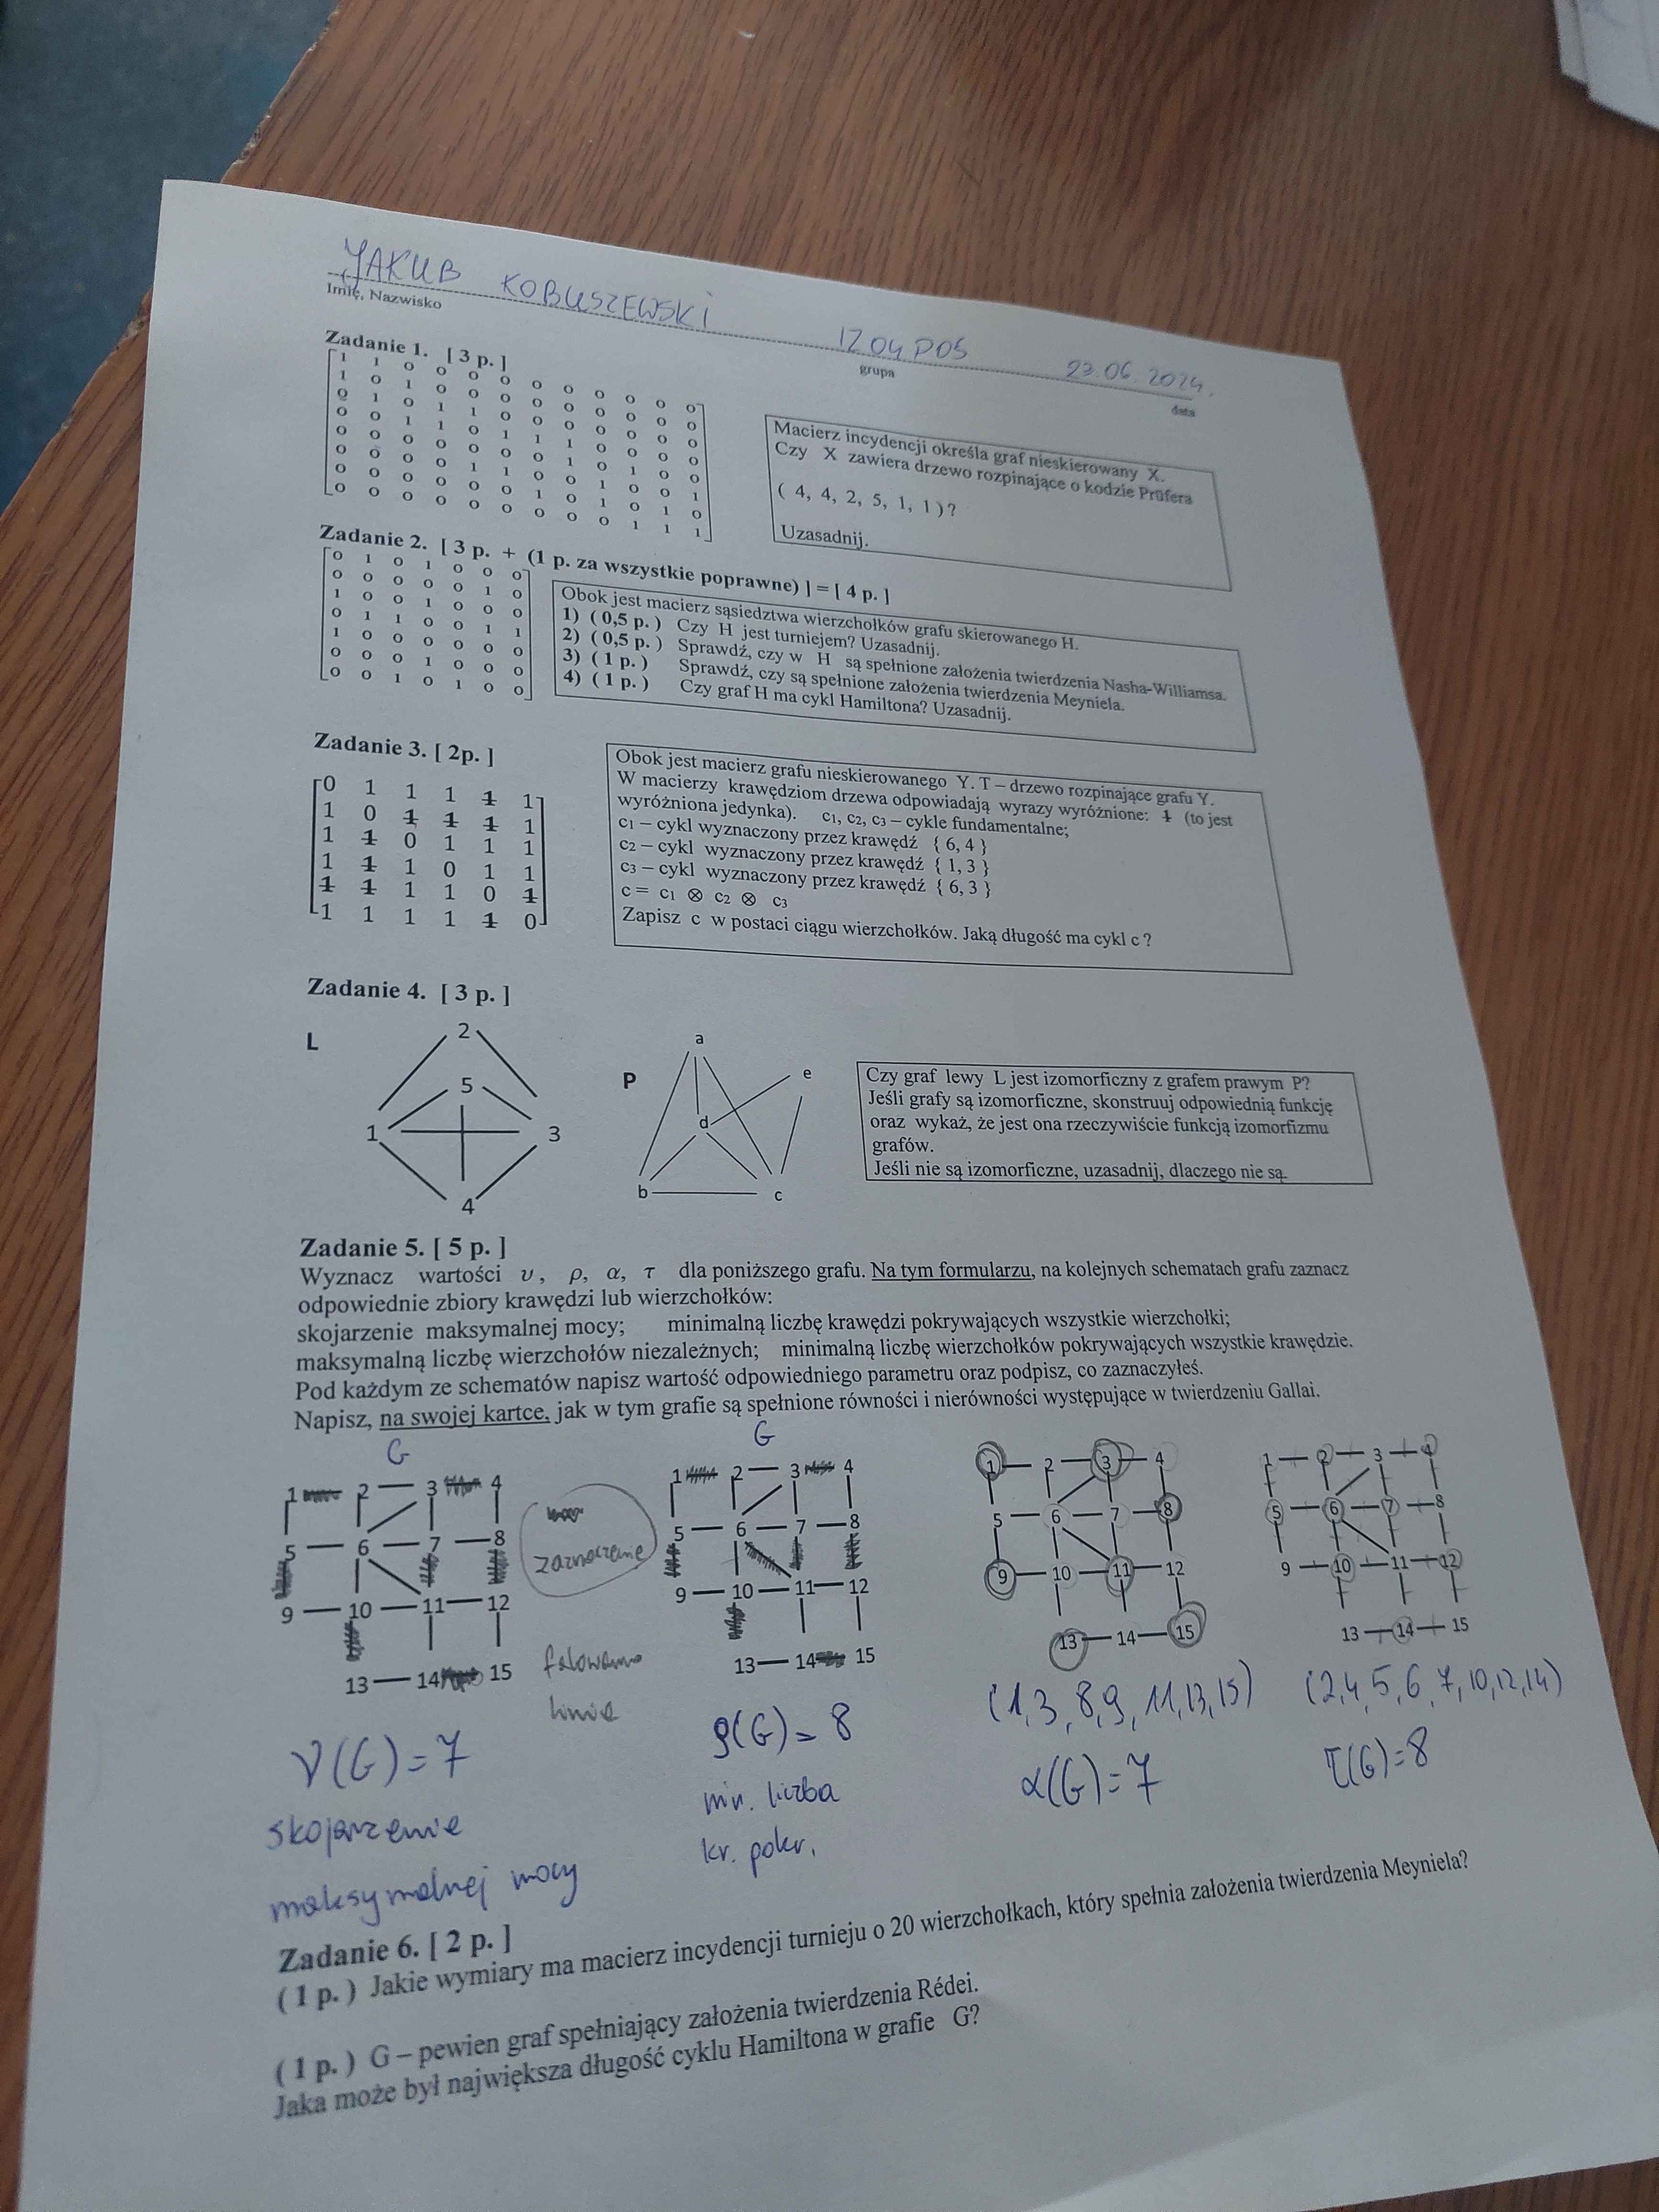 JAKUB KOBUSZEWSKI IZ04P05 23.06.2024.
Imię, Nazwisko grupa data
Zadanie 1. [ 3 p. ]
1 1 0 0 0 0 0 0 0 0 0 0
1 0 1 0 0 0 0 0 0 0 0 0
0 1 0 1 1 0 0 0 0 0 0 0
0 0 1 1 0 1 1 1 0 0 0 0
0 0 0 0 0 0 0 1 0 1 0 0
0 0 0 0 1 1 0 0 1 0 0 1
0 0 0 0 0 0 1 0 1 0 1 0
0 0 0 0 0 0 0 0 0 1 1 1
Macierz incydencji określa graf nieskierowany X.
Czy X zawiera drzewo rozpinające o kodzie Prüfera
( 4, 4, 2, 5, 1, 1 )?
Uzasadnij.
Zadanie 2. [ 3 p. + (1 p. za wszystkie poprawne) ] = [ 4 p. ]
0 1 0 1 0 0 0
0 0 0 0 0 1 0
1 0 0 1 0 0 0
0 1 1 0 0 1 1
1 0 0 0 0 0 0
0 0 0 1 0 0 0
0 0 1 0 1 0 0
Obok jest macierz sąsiedztwa wierzchołków grafu skierowanego H.
1) ( 0,5 p. ) Czy H jest turniejem? Uzasadnij.
2) ( 0,5 p. ) Sprawdź, czy w H są spełnione założenia twierdzenia Nasha-Williamsa.
3) ( 1 p. ) Sprawdź, czy są spełnione założenia twierdzenia Meyniela.
4) ( 1 p. ) Czy graf H ma cykl Hamiltona? Uzasadnij.
Zadanie 3. [ 2p. ]
0 1 1 1 1 1
1 0 1 1 1 1
1 1 0 1 1 1
1 1 1 0 1 1
1 1 1 1 0 1
1 1 1 1 1 0
Obok jest macierz grafu nieskierowanego Y. T – drzewo rozpinające grafu Y.
W macierzy krawędziom drzewa odpowiadają wyrazy wyróżnione: 1 (to jest
wyróżniona jedynka). c1, c2, c3 – cykle fundamentalne;
c1 – cykl wyznaczony przez krawędź { 6, 4 }
c2 – cykl wyznaczony przez krawędź { 1, 3 }
c3 – cykl wyznaczony przez krawędź { 6, 3 }
c = c1 ⊗ c2 ⊗ c3
Zapisz c w postaci ciągu wierzchołków. Jaką długość ma cykl c ?
Zadanie 4. [ 3 p. ]
L 2 5 1 3 4
P a e d b c
Czy graf lewy L jest izomorficzny z grafem prawym P?
Jeśli grafy są izomorficzne, skonstruuj odpowiednią funkcję
oraz wykaż, że jest ona rzeczywiście funkcją izomorfizmu
grafów.
Jeśli nie są izomorficzne, uzasadnij, dlaczego nie są.
Zadanie 5. [ 5 p. ]
Wyznacz wartości υ, ρ, α, τ dla poniższego grafu. Na tym formularzu, na kolejnych schematach grafu zaznacz
odpowiednie zbiory krawędzi lub wierzchołków:
skojarzenie maksymalnej mocy; minimalną liczbę krawędzi pokrywających wszystkie wierzchołki;
maksymalną liczbę wierzchołów niezależnych; minimalną liczbę wierzchołków pokrywających wszystkie krawędzie.
Pod każdym ze schematów napisz wartość odpowiedniego parametru oraz podpisz, co zaznaczyłeś.
Napisz, na swojej kartce, jak w tym grafie są spełnione równości i nierówności występujące w twierdzeniu Gallai.
G G
1 2 3 4 1 2 3 4 1 2 3 4 1 2 3 4
5 6 7 8 5 6 7 8 5 6 7 8 5 6 7 8
9 10 11 12 9 10 11 12 9 10 11 12 9 10 11 12
13 14 15 13 14 15 13 14 15 13 14 15
zaznaczenie
falowana
linia
ν(G)=7
skojarzenie
maksymalnej mocy
ρ(G)=8
min. liczba
kr. pokr.
(1,3,8,9,11,13,15)
α(G)=7
(2,4,5,6,7,10,12,14)
τ(G)=8
Zadanie 6. [ 2 p. ]
( 1 p. ) Jakie wymiary ma macierz incydencji turnieju o 20 wierzchołkach, który spełnia założenia twierdzenia Meyniela?
( 1 p. ) G – pewien graf spełniający założenia twierdzenia Rédei.
Jaka może był największa długość cyklu Hamiltona w grafie G?